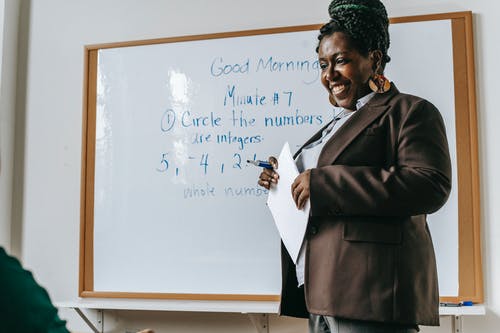 Good Morning
Minute #7
① Circle the numbers
are integers.
5, -4, 2
whole number